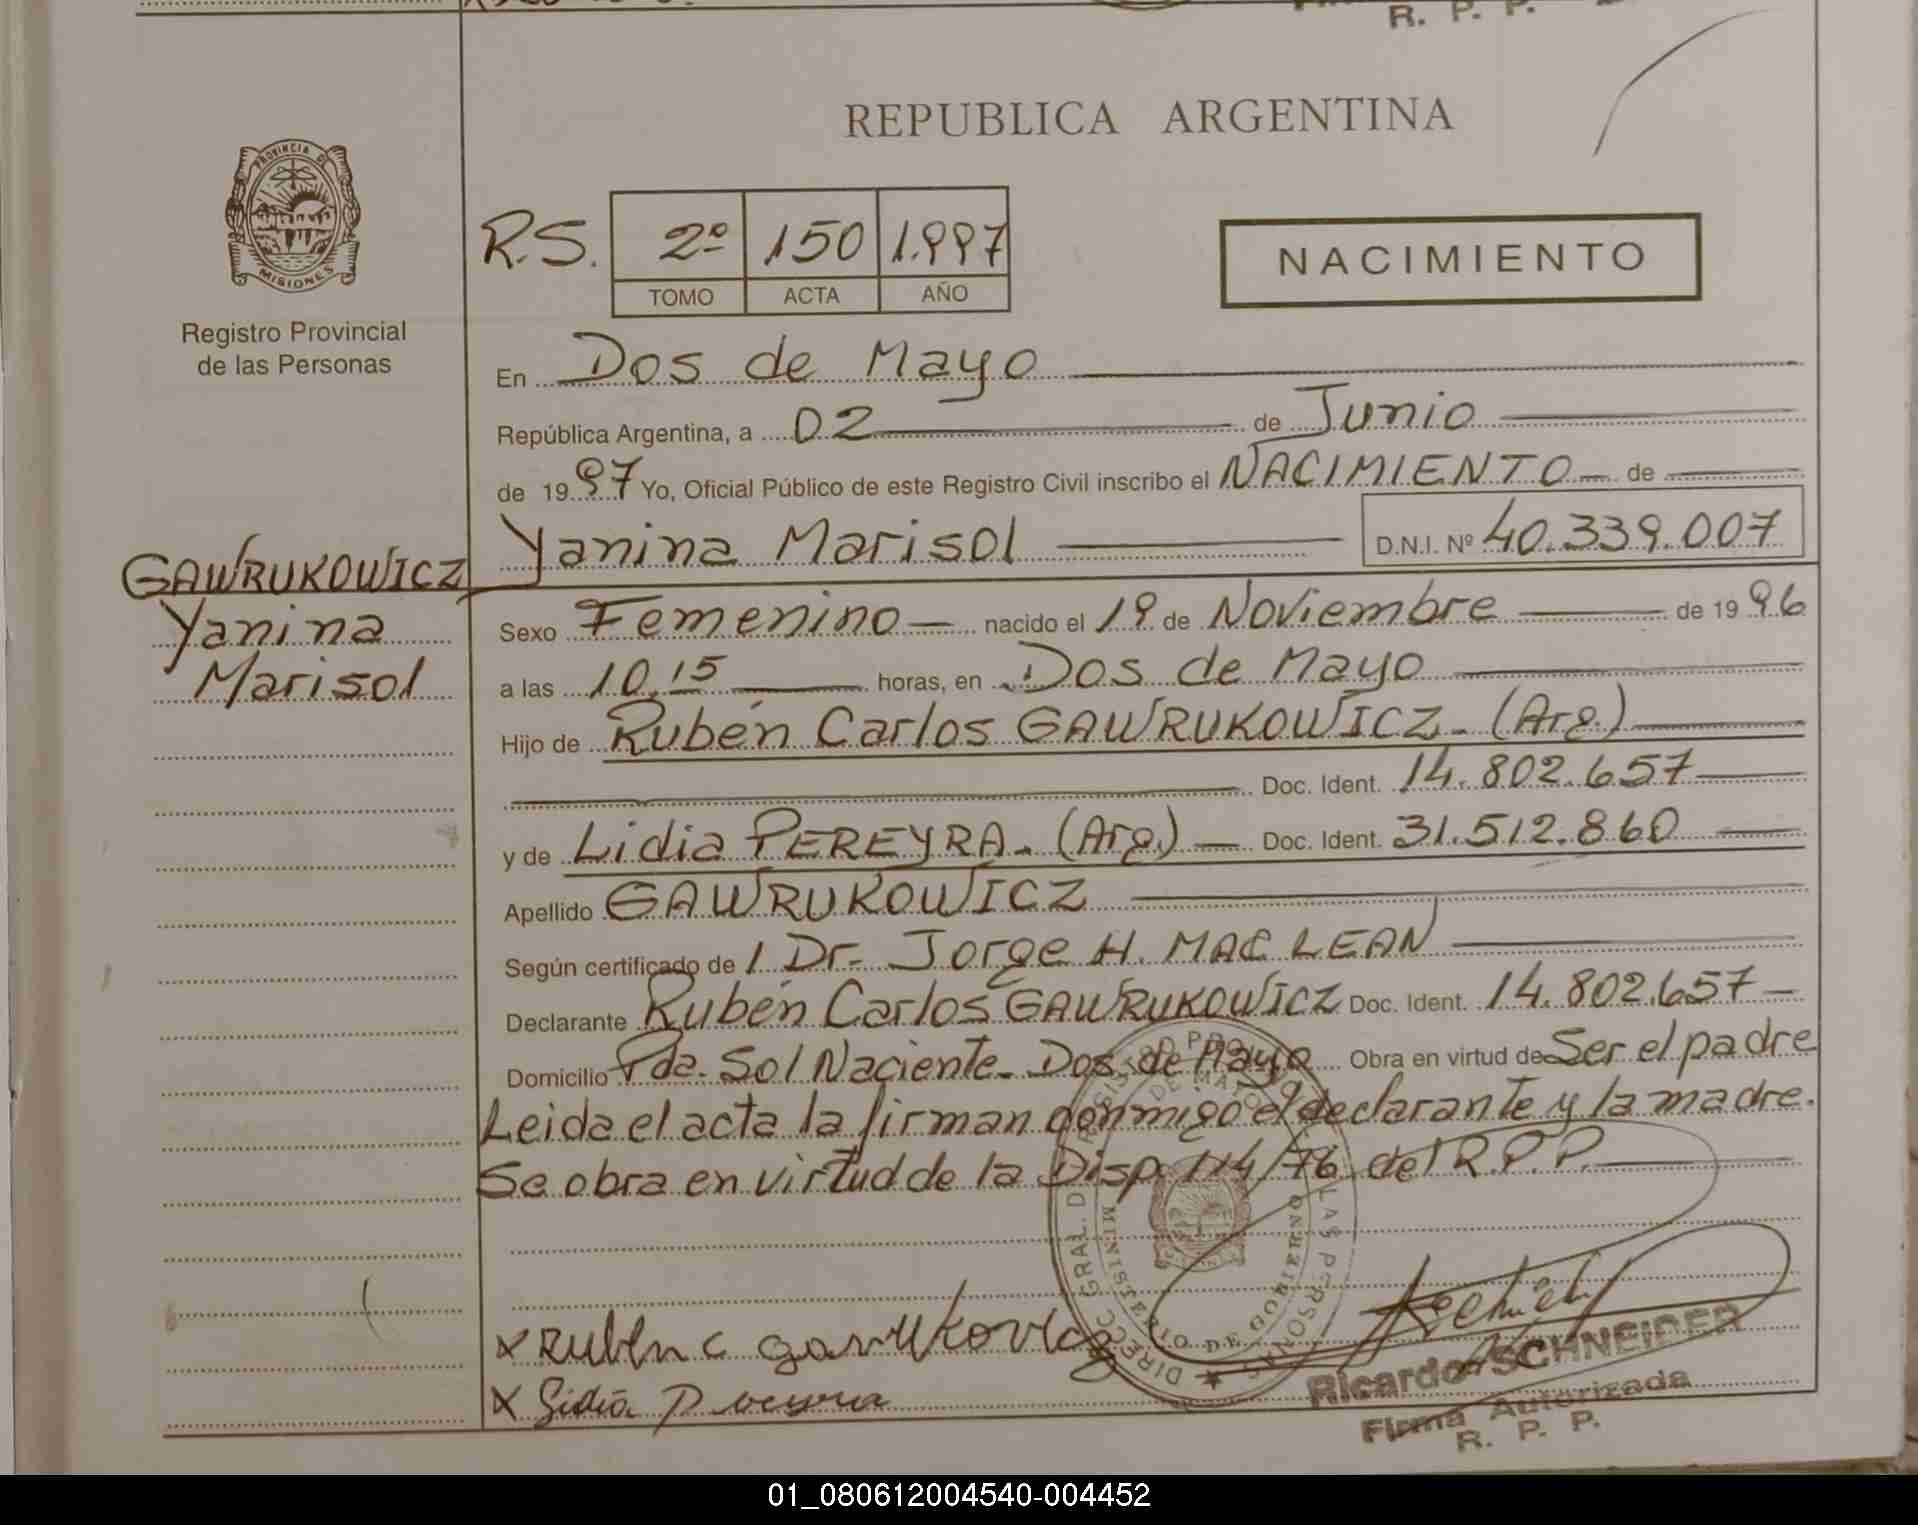 R. P. P.
REPUBLICA ARGENTINA
PROVINCIA DE
MISIONES
Registro Provincial
de las Personas
R.S. 2º 150 1.997
TOMO ACTA AÑO
NACIMIENTO
En Dos de Mayo
República Argentina, a 02 de Junio
de 1997 Yo, Oficial Público de este Registro Civil inscribo el NACIMIENTO de
Yanina Marisol D.N.I. Nº 40.339.007
GAWRUKOWICZ
Yanina
Marisol
Sexo Femenino nacido el 19 de Noviembre de 1996
a las 10,15 horas, en Dos de Mayo
Hijo de Rubén Carlos GAWRUKOWICZ. (Arg.)
Doc. Ident. 14.802.657
y de Lidia PEREYRA. (Arg.) Doc. Ident. 31.512.860
Apellido GAWRUKOWICZ
Según certificado de / Dr. Jorge H. MAC LEAN
Declarante Rubén Carlos GAWRUKOWICZ Doc. Ident. 14.802.657
Domicilio Pda. Sol Naciente. Dos de Mayo Obra en virtud de Ser el padre
Leida el acta la firman conmigo el declarante y la madre.
Se obra en virtud de la Disp. 114/76 del R.P.P.
MINISTERIO DE GOBIERNO
x Ruben c gawrukovicz
x Lidia Pereyra
Ricardo SCHNEIDER
Firma Autorizada
R. P. P.
01_080612004540-004452